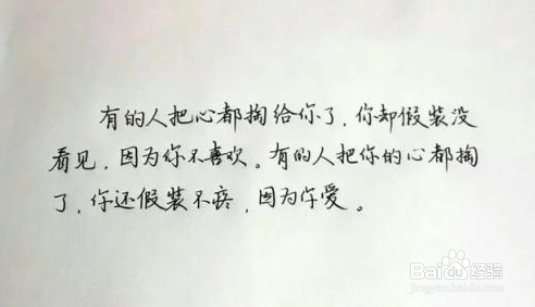 有的人把心都掏给你了，你却假装没
看见，因为你不喜欢。有的人把你的心都掏
了，你还假装不疼，因为你爱。
Baidu经验
jingyan.baidu.com